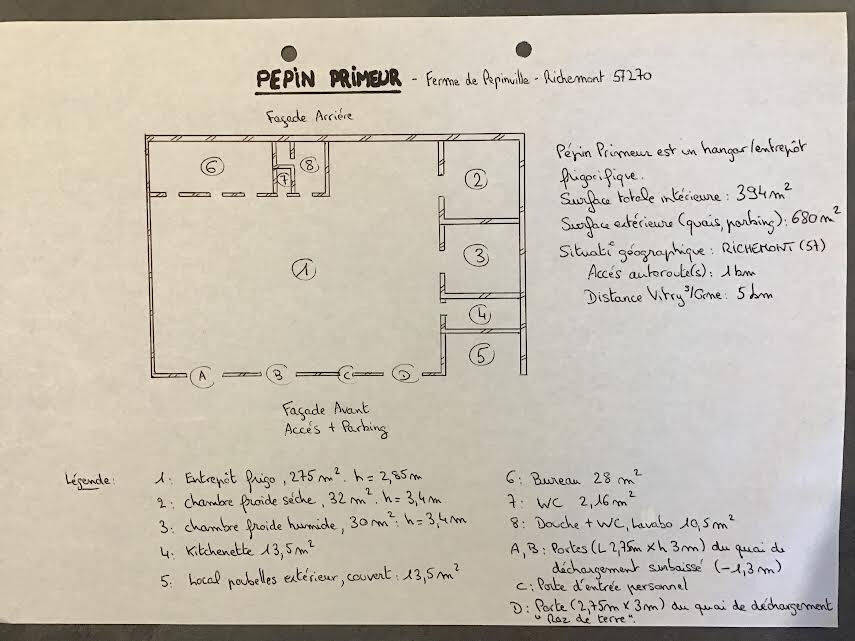 PEPIN PRIMEUR - Ferme de Pépinville - Richemont 57270
Façade Arriére
6
7
8
2
3
1
4
5
A
B
C
D
Façade Avant
Accés + Parking
Pépin Primeur est un hangar/entrepôt
frigorifique.
Surface totale intérieure : 394 m²
Surface extérieure (quais, parking) : 680 m²
Situat° géographique : RICHEMONT (57)
Accés autoroute(s) : 1 km
Distance Vitry s/Orne : 5 km
Légende :
1 : Entrepôt frigo, 275 m². h = 2,85m
2 : chambre froide séche, 32 m². h = 3,4m
3 : chambre froide humide, 30 m². h = 3,4m
4 : Kitchenette 13,5 m²
5 : Local poubelles extérieur, couvert : 13,5 m²
6 : Bureau 28 m²
7 : WC 2,16 m²
8 : Douche + WC, Lavabo 10,5 m²
A, B : Portes (L 2,75m x h 3m) du quai de
déchargement surbaissé (-1,3 m)
C : Porte d'entrée personnel
D : Porte (2,75m x 3m) du quai de déchargement
"Raz de terre".